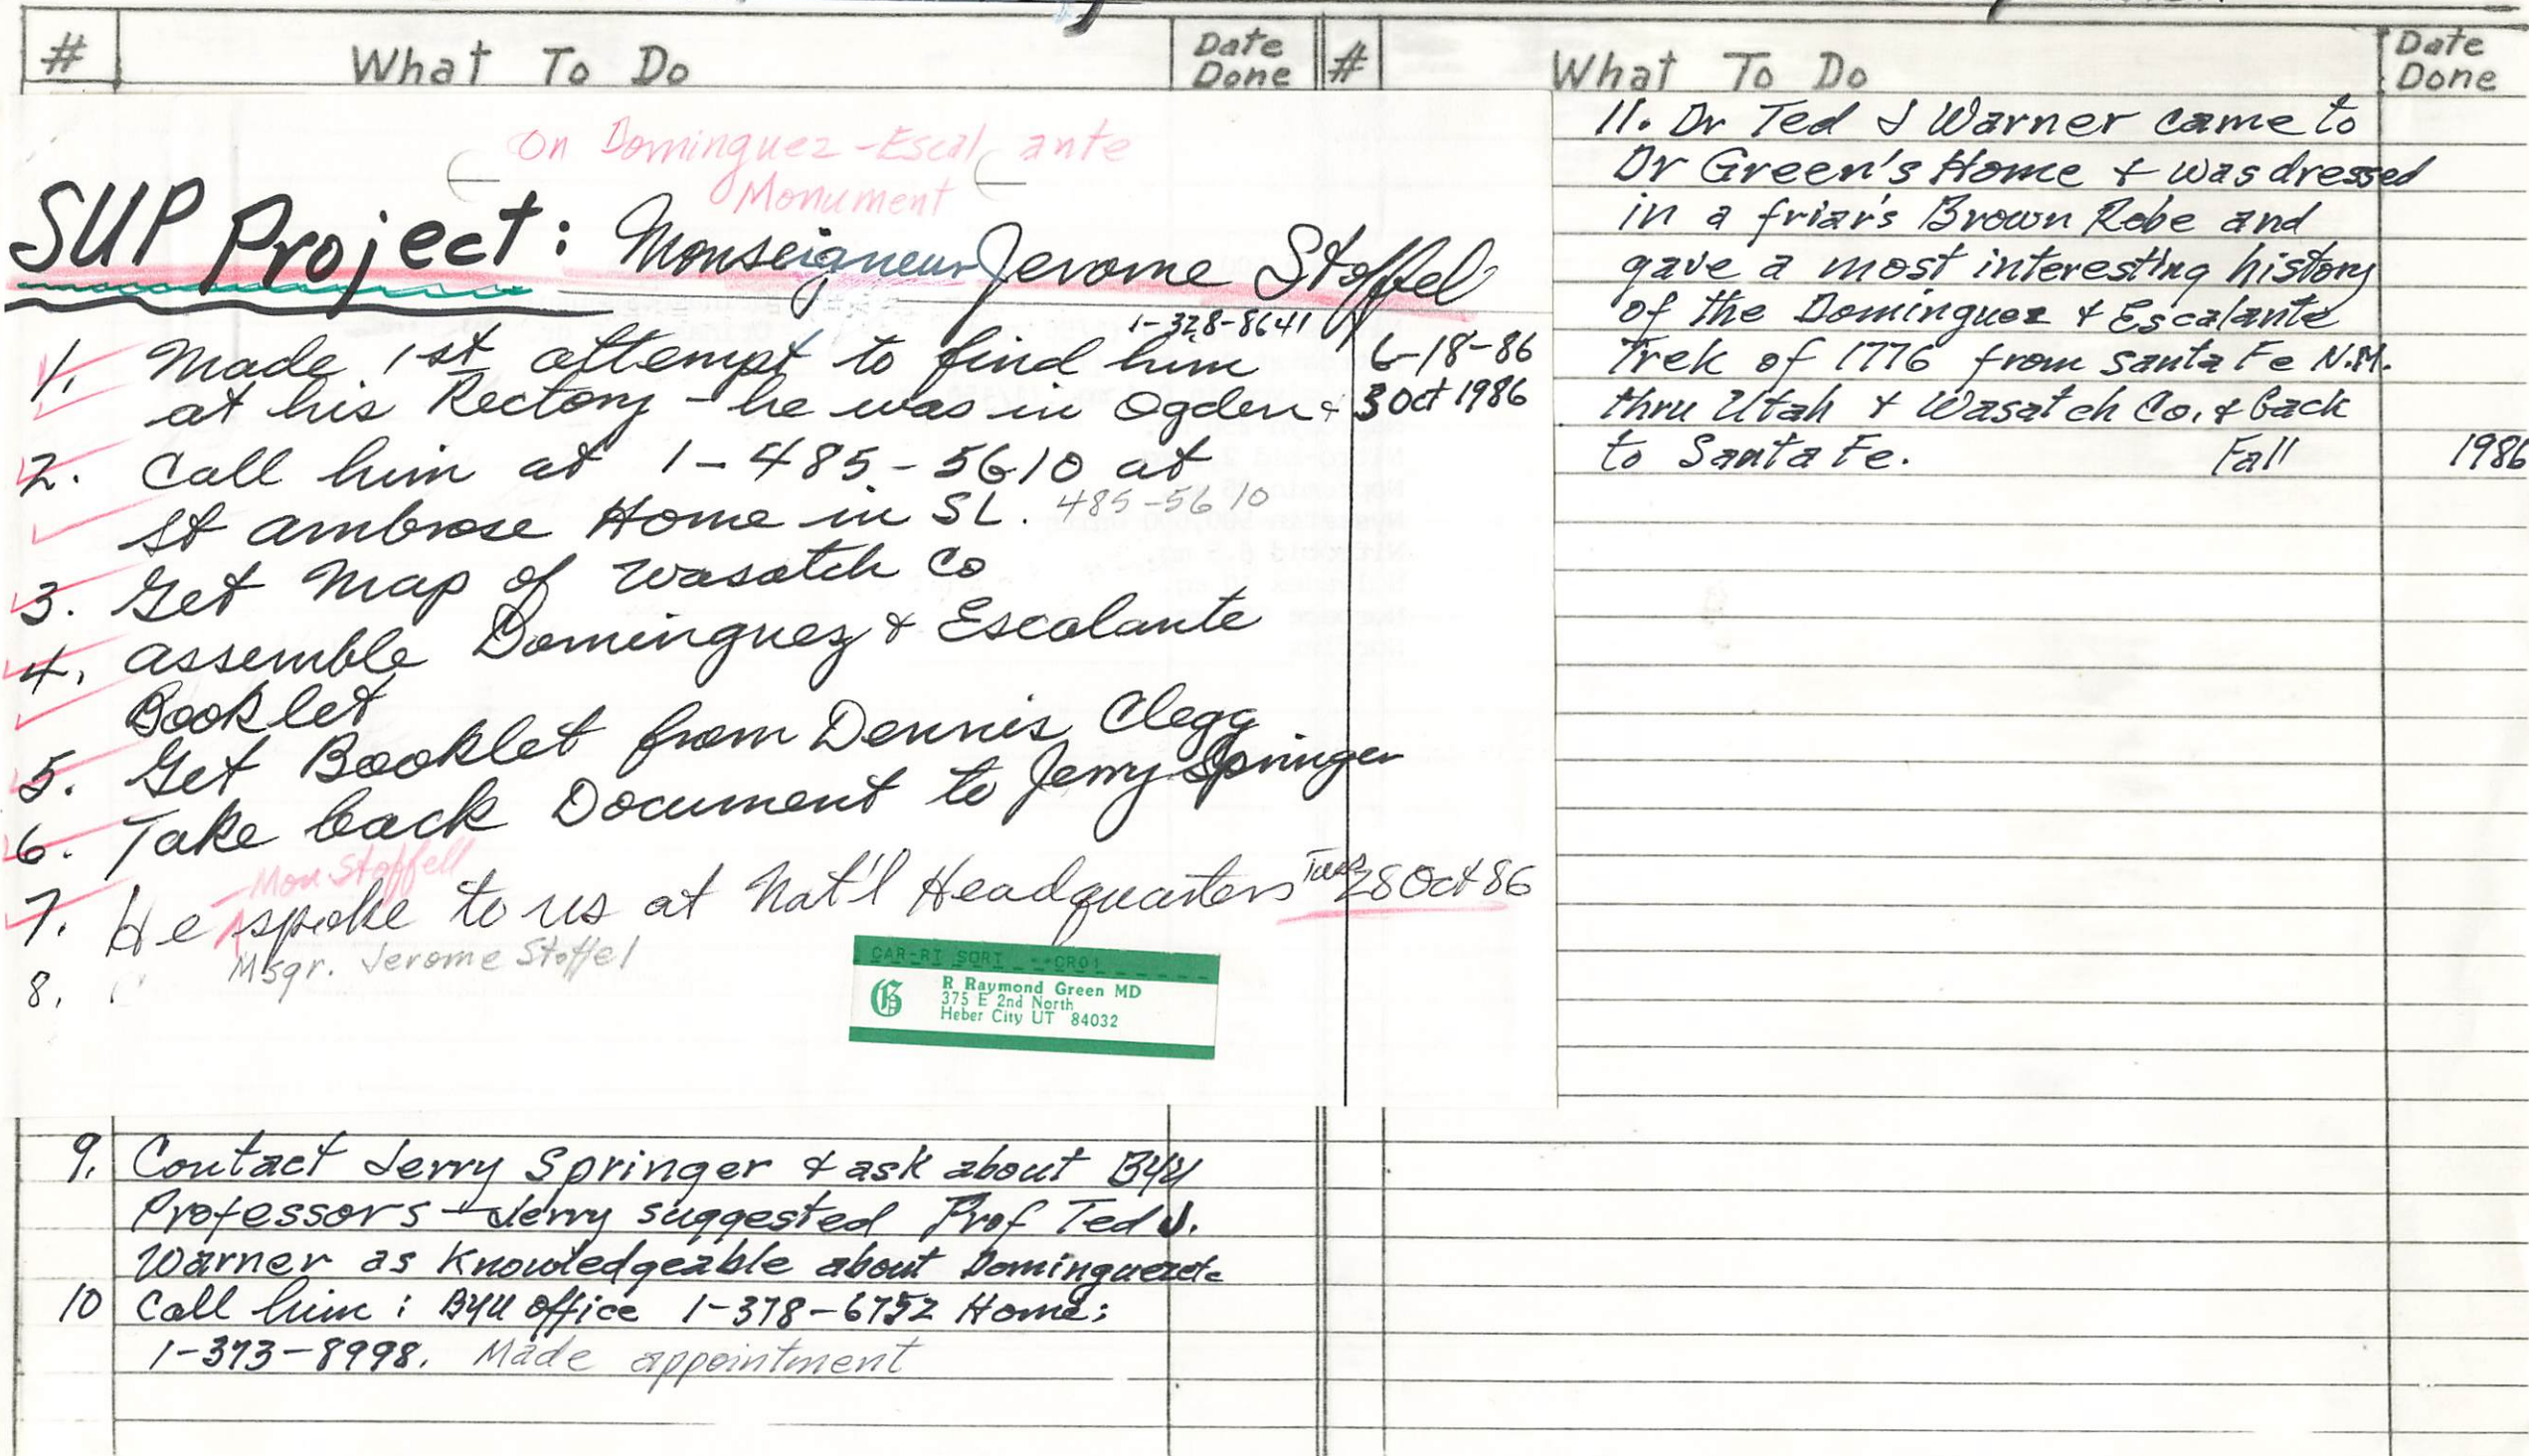 # What To Do Date Done # What To Do Date Done
On Dominguez-Escalante
Monument
SUP Project: Monseigneur Jerome Stoffel
1-328-8641
1. Made 1st attempt to find him 6-18-86
at his Rectory - he was in Ogden + 3 Oct 1986
2. Call him at 1-485-5610 at
St Ambrose Home in SL. 485-5610
3. Get Map of Wasatch Co
4. Assemble Dominguez & Escalante
Booklet
5. Get Booklet from Dennis Clegg
6. Take back Document to Jerry Springer
Mon Stoffell
7. He spoke to us at Nat'l Headquarters Tues 28 Oct 86
Msgr. Jerome Stoffel
8.
CAR-RT SORT **CR01
G
R Raymond Green MD
375 E 2nd North
Heber City UT 84032
9. Contact Jerry Springer & ask about BYU
Professors - Jerry suggested Prof Ted J.
Warner as Knowledgeable about Dominguez etc
10 Call him: BYU office 1-378-6752 Home:
1-373-8998. Made appointment
11. Dr Ted J Warner came to
Dr Green's Home & was dressed
in a friar's Brown Robe and
gave a most interesting history
of the Dominguez & Escalante
Trek of 1776 from Santa Fe N.M.
thru Utah & Wasatch Co. & back
to Santa Fe. Fall 1986